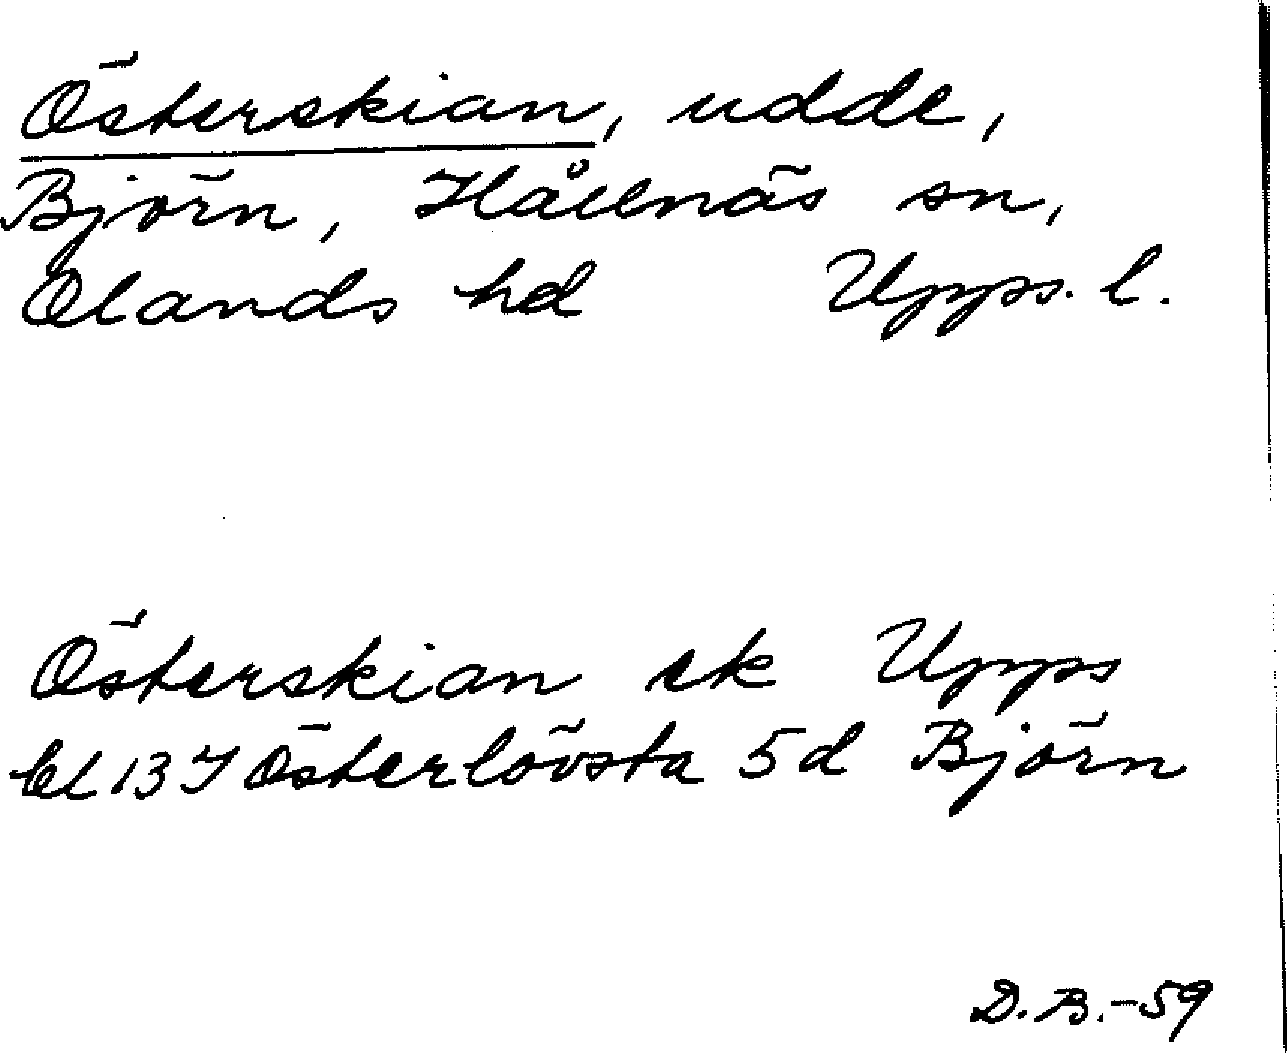 Österskian, udde,
Björn, Hållnäs sn,
Olands hd Upps. l.
Österskian ek Upps
bl 13 I Österlövsta 5d Björn
D.B.-59